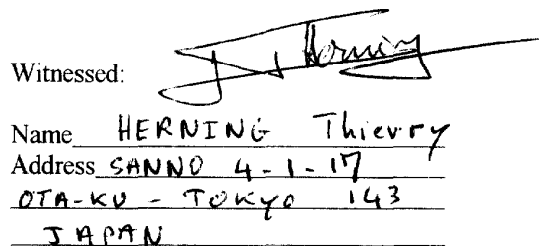 Witnessed: J. Herning
Name HERNING Thierry
Address SANNO 4-1-17
OTA-KU - TOKYO 143
JAPAN